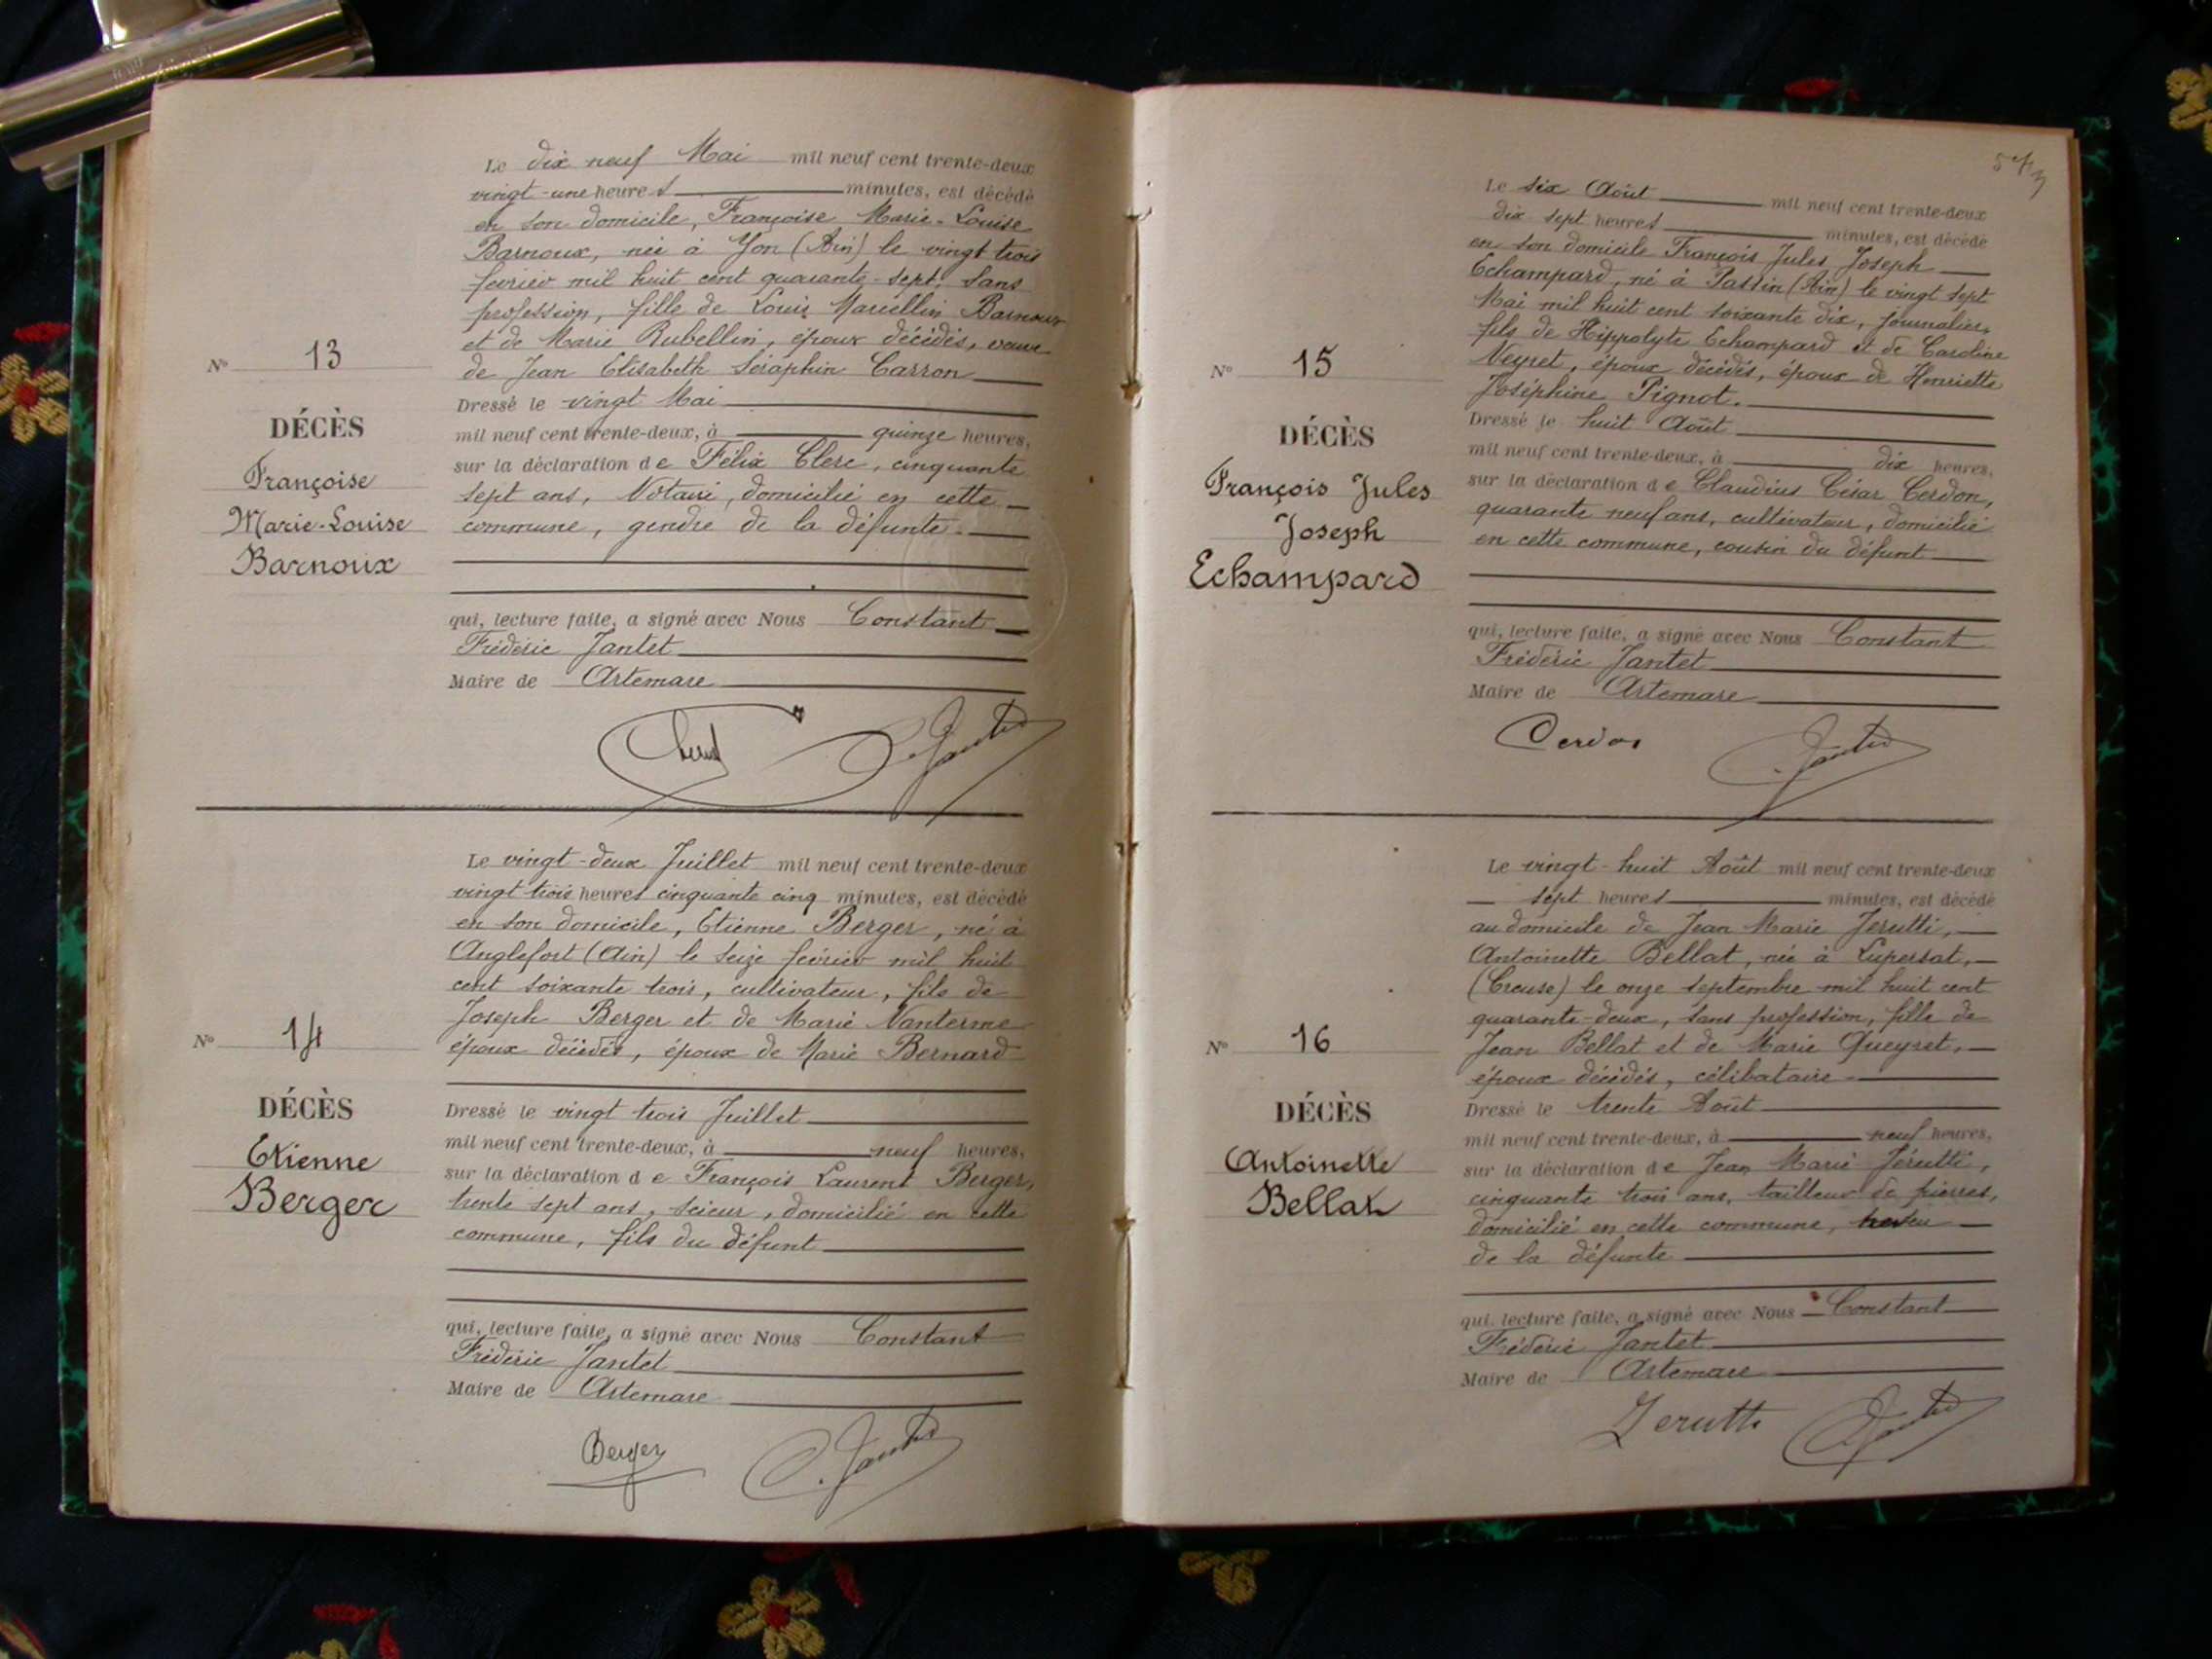 Le dix neuf Mai mil neuf cent trente-deux
vingt-une heures minutes, est décédé
en son domicile, Françoise Marie-Louise
Barnoux, née à Yon (Ain) le vingt trois
février mil huit cent quarante-sept, sans
profession, fille de Louis Marcellin Barnoux
et de Marie Rubellin, époux décédés, veuve
de Jean Elisabeth Séraphin Carron
Dressé le vingt Mai
mil neuf cent trente-deux, à quinze heures,
sur la déclaration de Félix Clerc, cinquante
sept ans, Notaire, domicilié en cette
commune, gendre de la défunte.
qui, lecture faite, a signé avec Nous Constant
Frédéric Jantet
Maire de Artemare
N° 13
DÉCÈS
Françoise
Marie-Louise
Barnoux
C. Jantet
Le vingt-deux Juillet mil neuf cent trente-deux
vingt trois heures cinquante cinq minutes, est décédé
en son domicile, Etienne Berger, né à
Anglefort (Ain) le seize février mil huit
cent soixante trois, cultivateur, fils de
Joseph Berger et de Marie Nanterme
époux décédés, époux de Marie Bernard
Dressé le vingt trois Juillet
mil neuf cent trente-deux, à neuf heures,
sur la déclaration de François Laurent Berger,
trente sept ans, scieur, domicilié en cette
commune, fils du défunt
qui, lecture faite, a signé avec Nous Constant
Frédéric Jantet
Maire de Artemare
N° 14
DÉCÈS
Etienne
Berger
Berger C. Jantet
Le six Août mil neuf cent trente-deux
dix sept heures minutes, est décédé
en son domicile François Jules Joseph
Echampard, né à Passin (Ain) le vingt sept
Mai mil huit cent soixante dix, journalier,
fils de Hippolyte Echampard et de Caroline
Neyret, époux décédés, époux de Henriette
Joséphine Pignot.
Dressé le huit Août
mil neuf cent trente-deux, à dix heures,
sur la déclaration de Claudius César Cerdon,
quarante neuf ans, cultivateur, domicilié
en cette commune, cousin du défunt
qui, lecture faite, a signé avec Nous Constant
Frédéric Jantet
Maire de Artemare
N° 15
DÉCÈS
François Jules
Joseph
Echampard
Cerdon C. Jantet
Le vingt-huit Août mil neuf cent trente-deux
sept heures minutes, est décédé
au domicile de Jean Marie Jerutti,
Antoinette Bellat, née à Lupersat,
(Creuse) le onze septembre mil huit cent
quarante-deux, sans profession, fille de
Jean Bellat et de Marie Queyret,
époux décédés, célibataire
Dressé le trente Août
mil neuf cent trente-deux, à neuf heures,
sur la déclaration de Jean Marie Jérutti,
cinquante trois ans, tailleur de pierres,
domicilié en cette commune, neveu
de la défunte
qui, lecture faite, a signé avec Nous Constant
Frédéric Jantet
Maire de Artemare
N° 16
DÉCÈS
Antoinette
Bellat
Jerutti C. Jantet